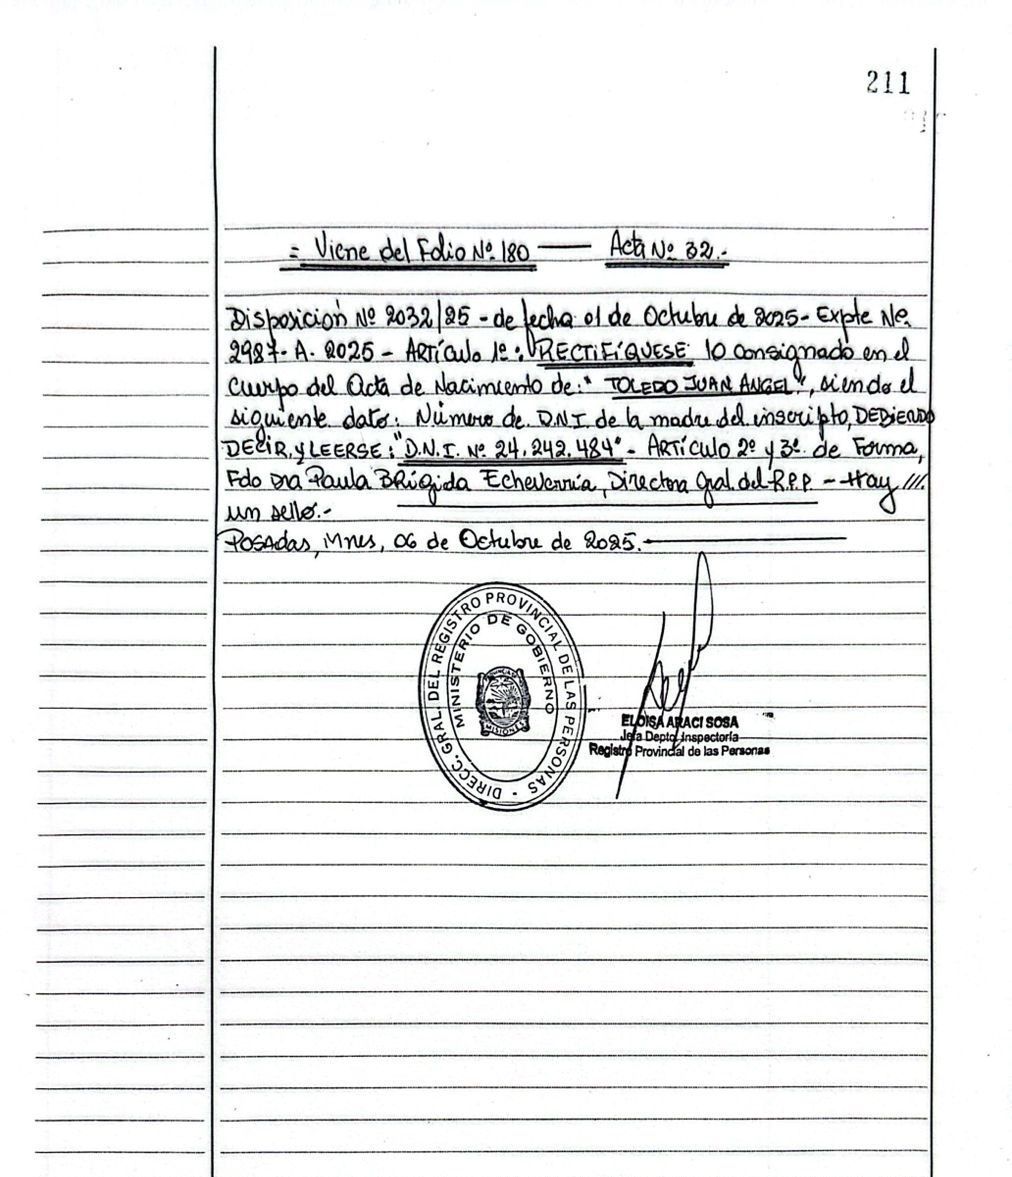 211
= Viene del Folio Nº 180 —— Acta Nº 32.-
Disposición Nº 2032/25 - de fecha 01 de Octubre de 2025 - Expte Nº.
2987- A. 2025 - ARTÍCULO 1º: RECTIFÍQUESE lo consignado en el
cuerpo del Acta de Nacimiento de: "TOLEDO JUAN ANGEL", siendo el
siguiente dato: Número de D.N.I de la madre del inscripto, DEBIENDO
DECIR, y LEERSE: "D.N.I. Nº 24.242.484" - ARTÍCULO 2º y 3º de Forma,
Fdo Dra Paula BRígida Echeverría, Directora Gral. del R.P.P. - Hay ///.
un sello.-
POSAdas, Mnes, 06 de Octubre de 2025.——
DIRECC. GRAL. DEL REGISTRO PROVINCIAL DE LAS PERSONAS -
MINISTERIO DE GOBIERNO
MISIONES
ELOISA ARACI SOSA
Jefa Depto. Inspectoría
Registro Provincial de las Personas